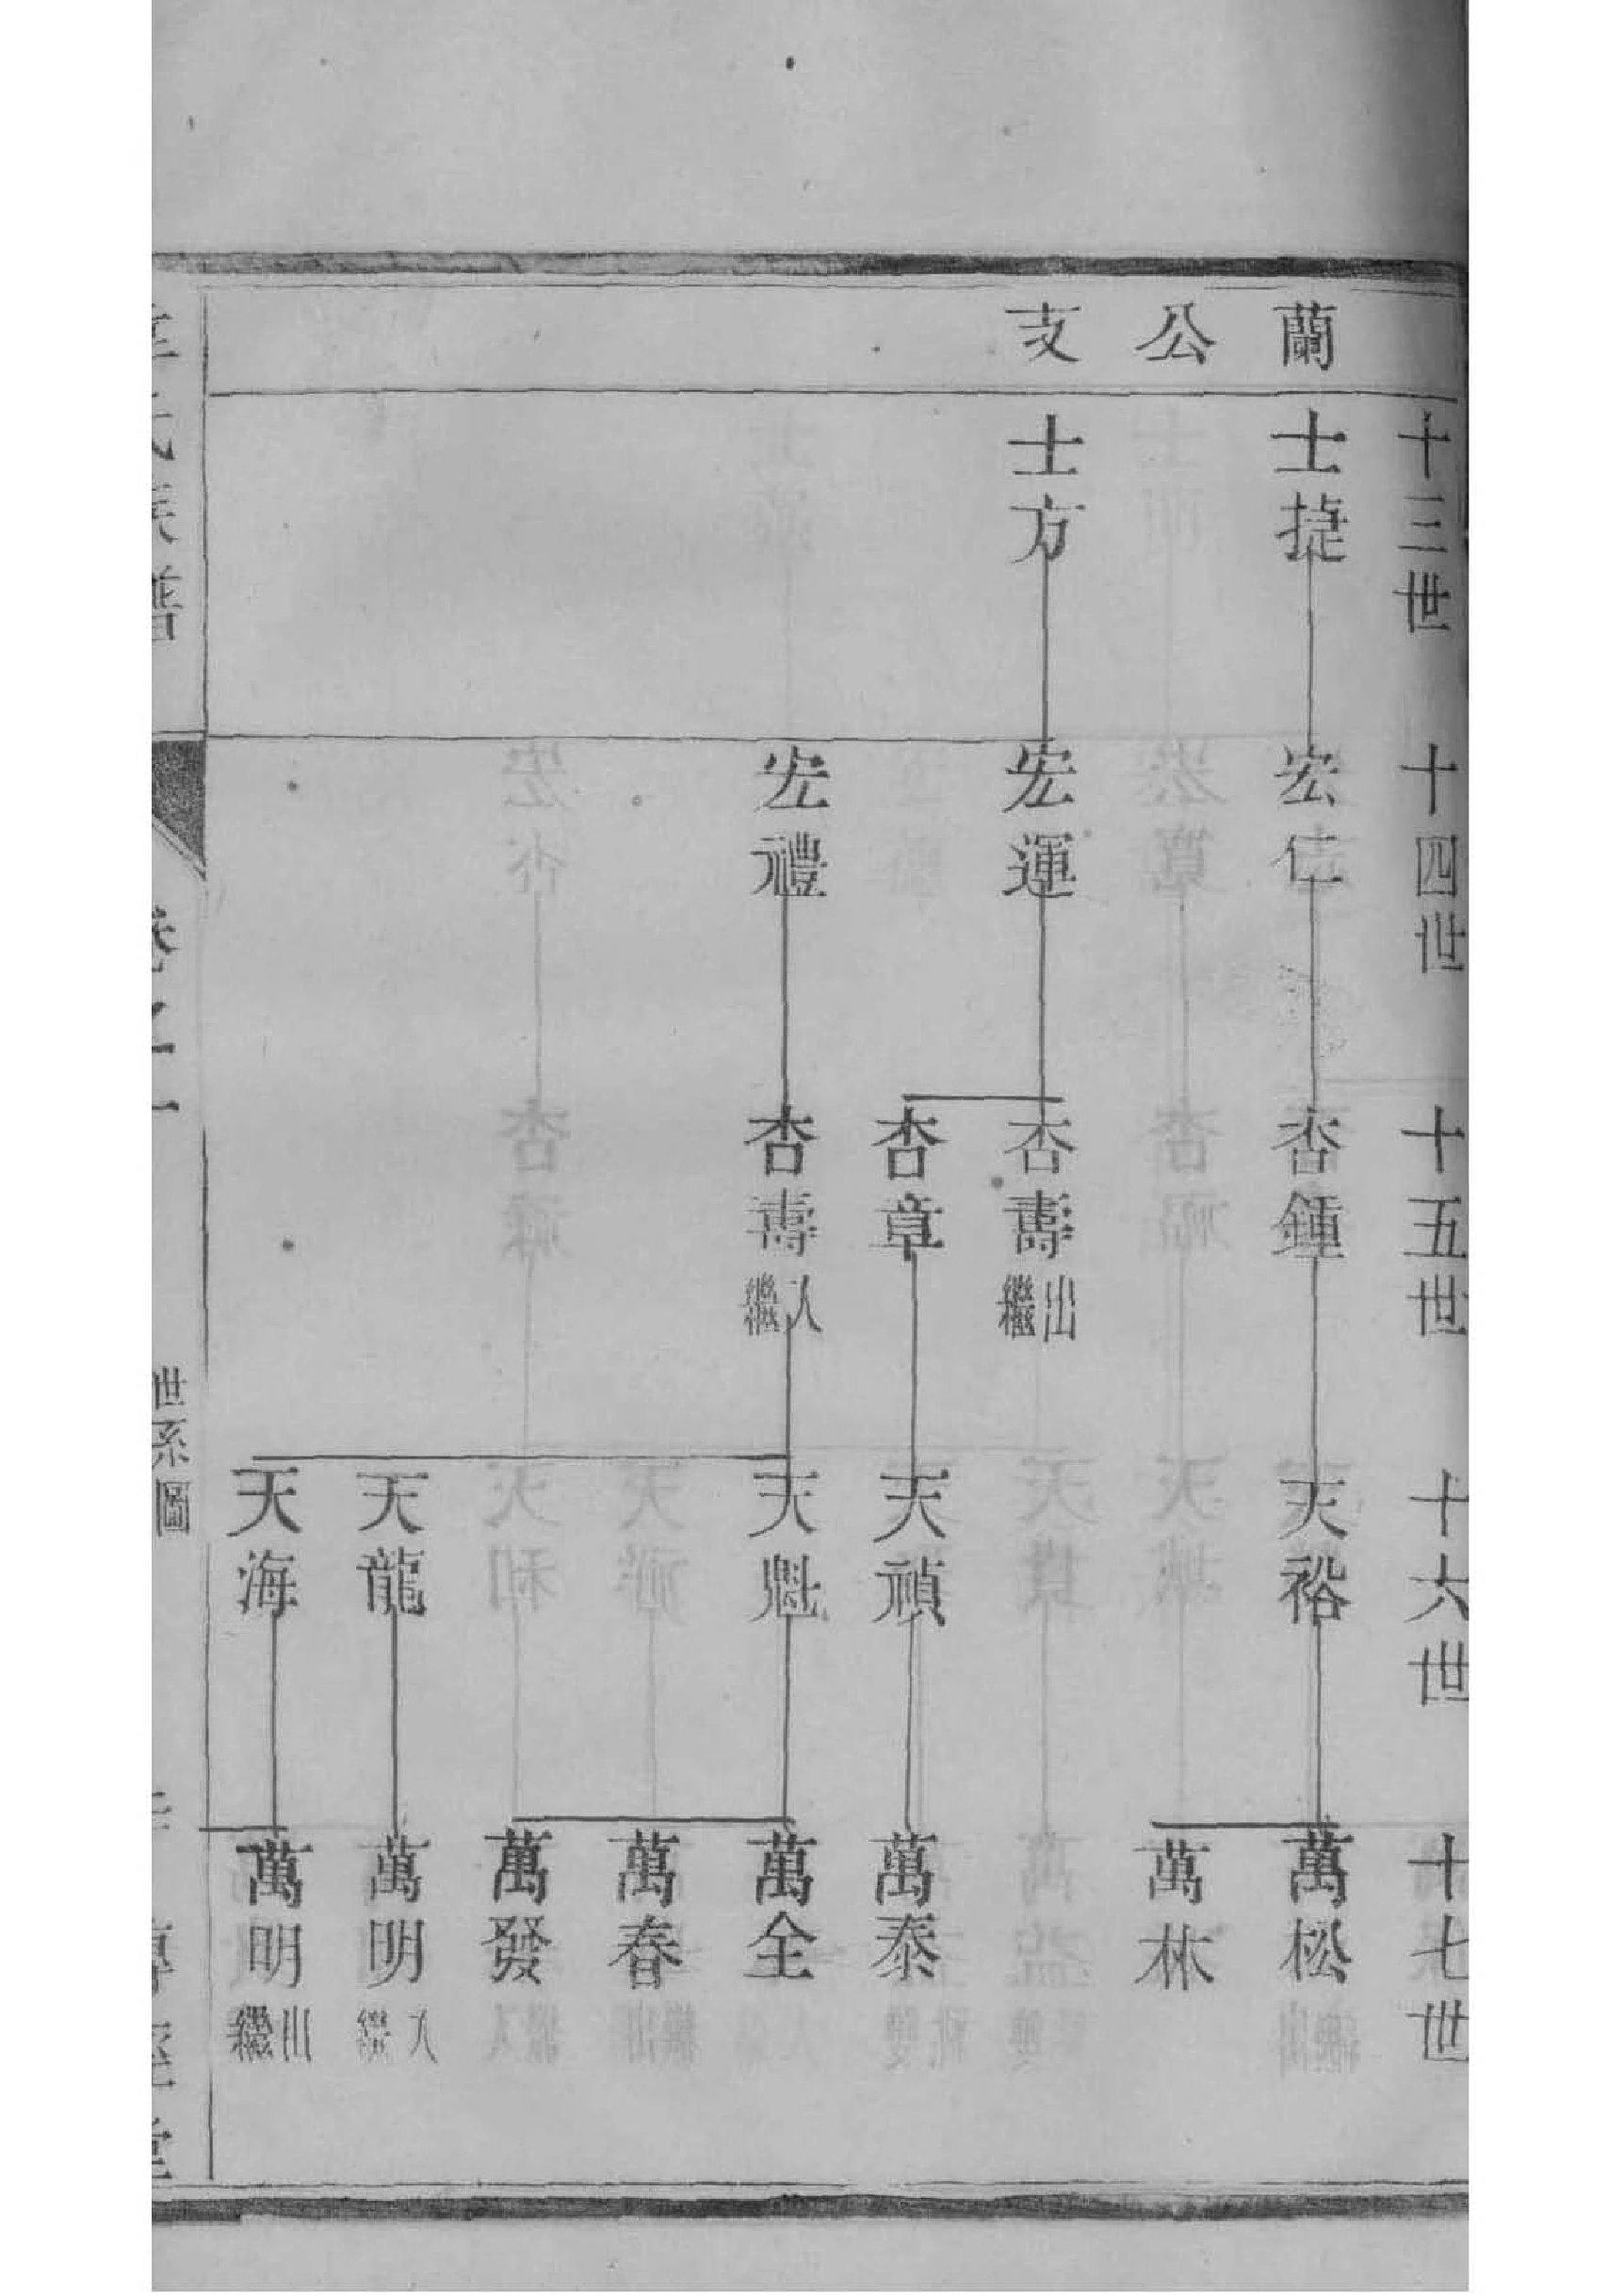 蘭公支
十三世
士捷
士方
十四世
宏仁
宏運
宏禮
十五世
杏鍾
杏壽出繼
杏章
杏壽入繼
十六世
天裕
天禎
天魁
天龍
天海
十七世
萬松
萬林
萬泰
萬全
萬春
萬發
萬明入繼
萬明出繼
氏族譜
卷之一
世系圖